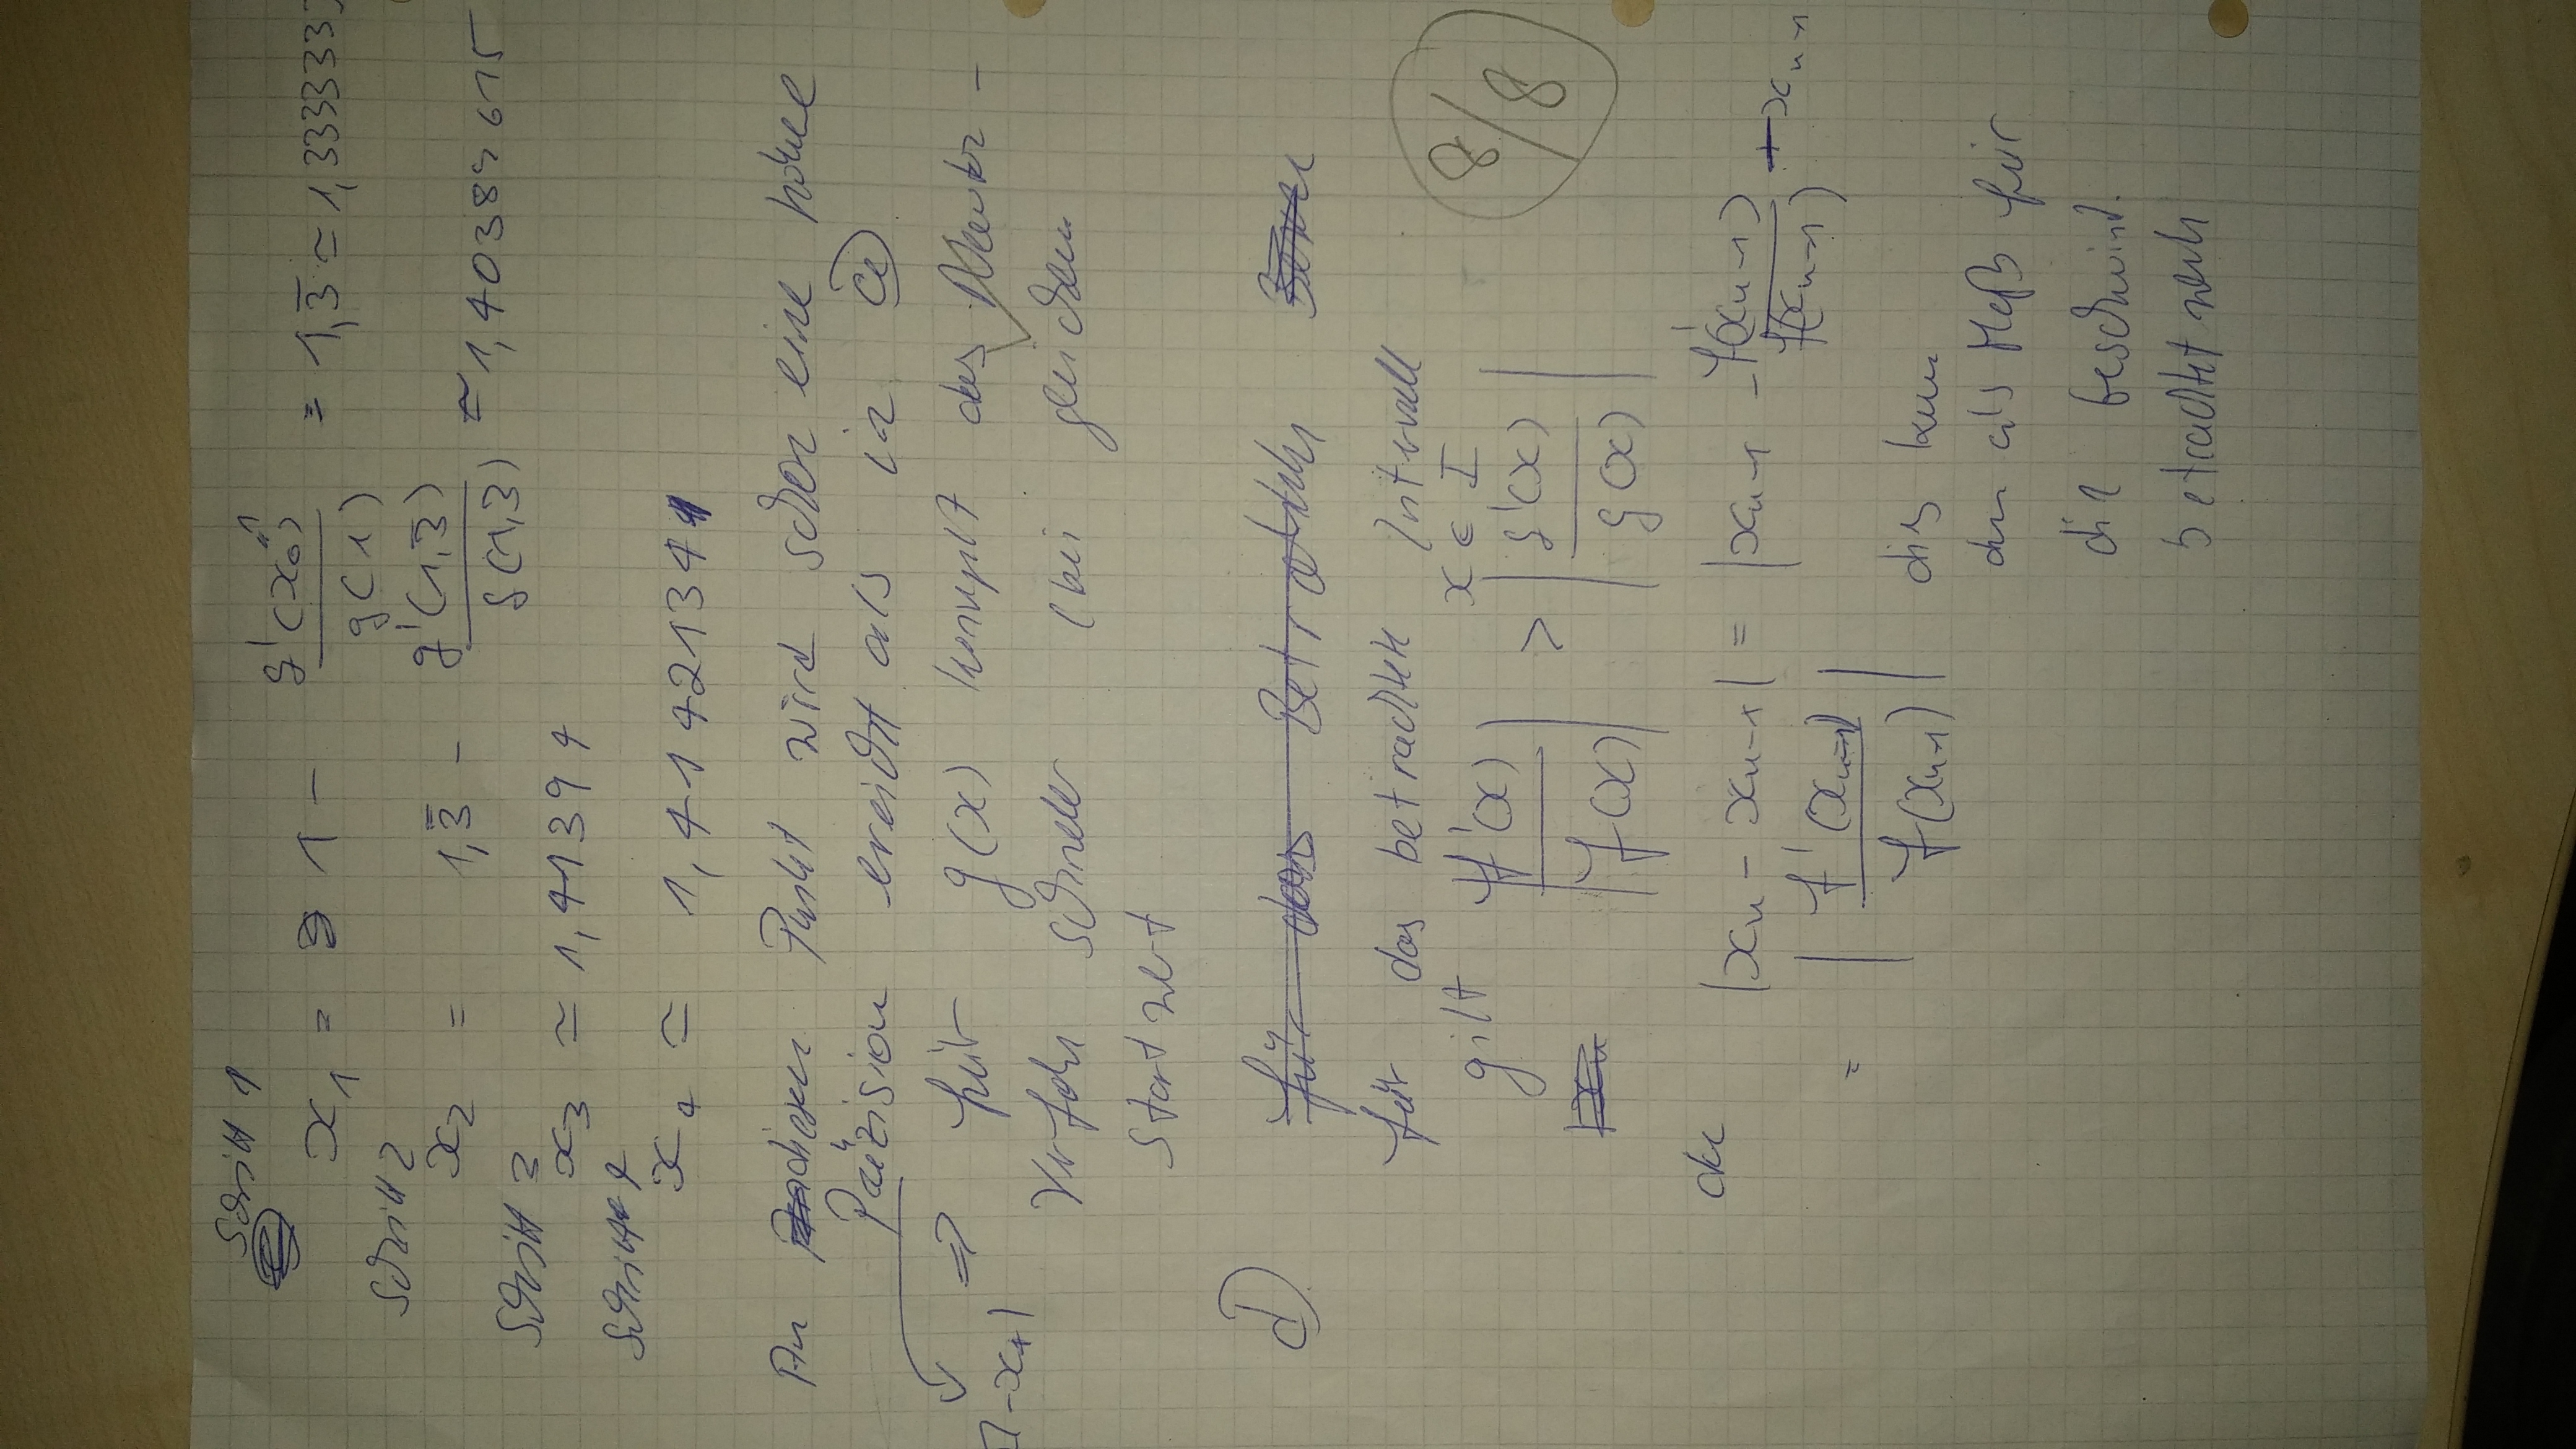 Schritt 1
x₁ = 1 - g'(x₀) "1" / g(1) = 1,3̄ ≃ 1,3333333
Schritt 2
x₂ = 1,3̄ - g'(1,3̄) / g(1,3) ≃ 1,40384615
Schritt 3
x₃ ≃ 1,41394
Schritt 4
x₄ ≃ 1,41421344
An diesem Punkt wird schon eine höhere
Präzision ereicht als in a)
-x₄|
⇒ für g(x) das Newton-
Verfahr schneller (bei gleichem
Startwert
d) für das Betrachten
für das betrachtete Intervall
gilt x ∈ I
|f'(x) / f(x)| > |g'(x) / g(x)|
da |xₙ - xₙ₋₁| = |xₙ₋₁ - f'(xₙ₋₁) / f(xₙ₋₁) - xₙ₋₁
= |f'(xₙ₋₁) / f(xₙ₋₁)|
dies kann
dann als Maß für
die Geschwind.
betrachtet werden
8/8